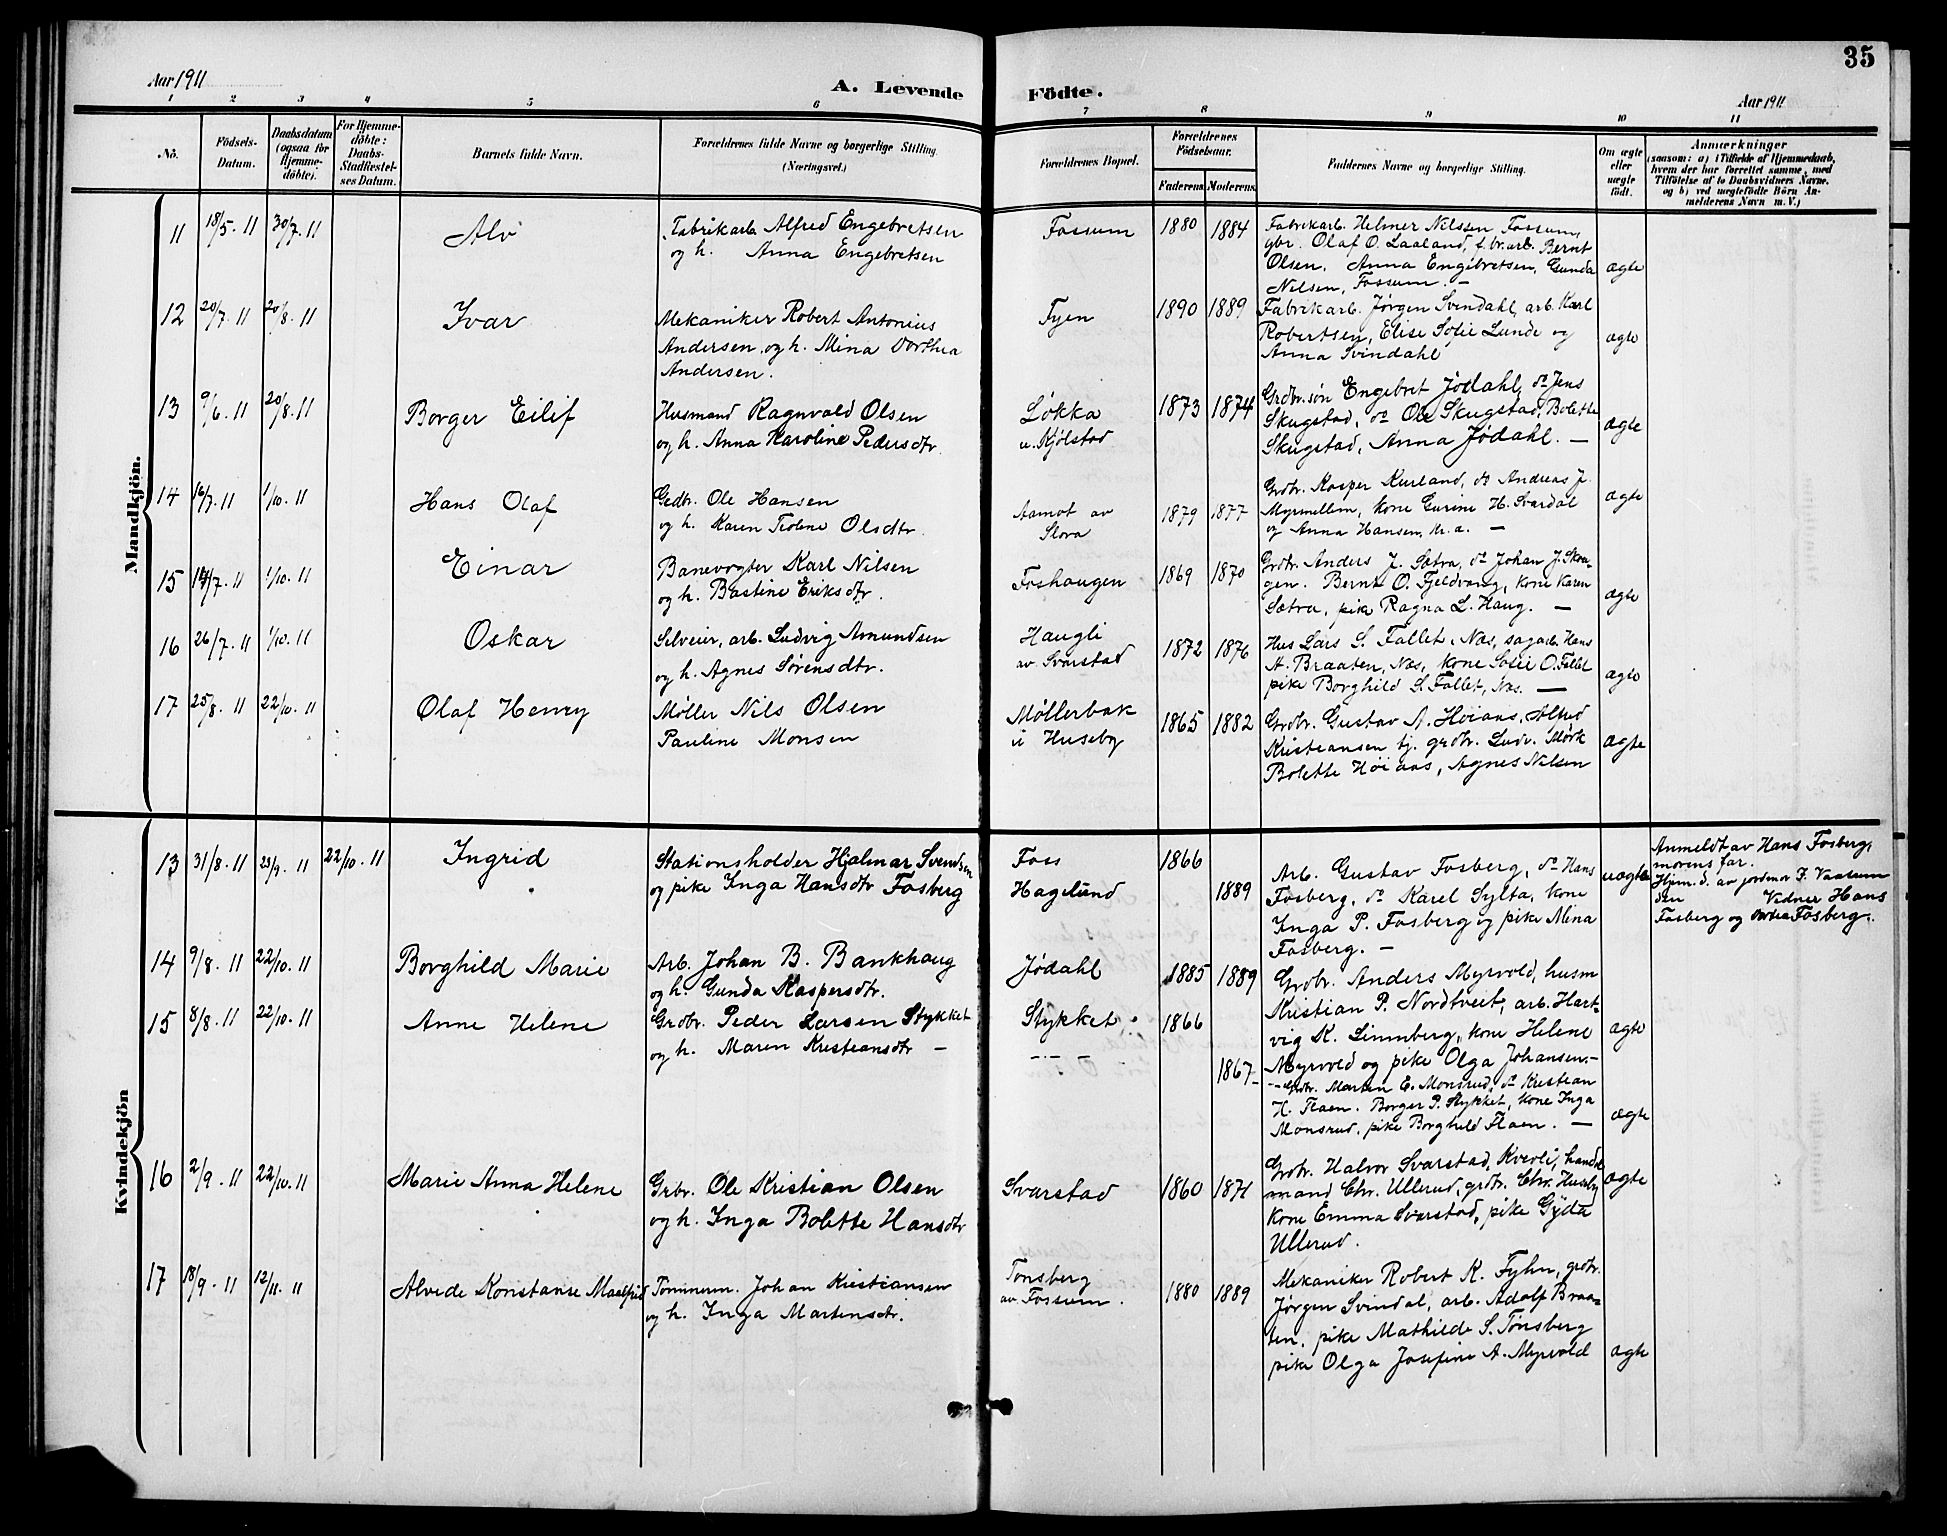 35
Aar 1911
A. Levende
Födte.
Aar 1911
1 2 3 4 5 6 7 8 9 10 11
Nô.
Födsels-
Datum.
Daabsdatum
(ogsaa for
Hjemme-
döbte).
For Hjemme-
döbte:
Daabs-
Stadfæstel-
ses Datum.
Barnets fulde Navn.
Forældrenes fulde Navne og borgerlige Stilling
(Næringsvei.)
Forældrenes Bopæl.
Forældrenes
Födselsaar.
Faderens. Moderens.
Faddernes Navne og borgerlige Stilling.
Om ægte
eller
uægte
födt.
Anmærkninger
(saasom: a) i Tilfælde af Hjemmedaab,
hvem der har forrettet samme, med
Tilföielse af to Daabsvidners Navne,
og b) ved uægtefödte Börn An-
melderens Navn m. V.)
Mandkjön.
11 18/5. 11 30/7. 11
Alv
Fabrikarb. Alfred Engebretsen
og h. Anna Engebretsen
Fossum
1880 1884
Fabrikarb. Helmer Nilssen Fossum,
gbr. Olaf O. Laaland, f. br. arb. Bernt
Olsen, Anna Engebretsen, Gunda
Nilsen, Fossum. –
ægte
12 20/7. 11 20/8. 11
Ivar
Mekaniker Robert Antonius
Andersen og h. Mina Dorthea
Andersen.
Fyen
1890 1889
Fabrikarb. Jørgen Svindahl, arb. Karl
Robertsen, Elise Sofie Lunde og
Anna Svindahl
ægte
13 9/6. 11 20/8. 11
Borger Eilif
Husmand Ragnvald Olsen
og h. Anna Karoline Pedersdtr.
Løkka
u. Kjølstad
1873 1874
Grdbr.søn Engebret Jødahl, do Jens
Skugstad, do Ole Skugstad, Bolette
Skugstad, Anna Jødahl. –
ægte
14 16/7. 11 1/10. 11
Hans Olaf
Grdbr. Ole Hansen
og h. Karen Teoline Olsdtr.
Aamot av
Slora
1879 1877
Grdbr. Kasper Kurland, do Andreas J.
Myrmellem, kone Gurine H. Svardal
og Anna Hansen, Kr.a. –
ægte
15 14/7. 11 1/10. 11
Einar
Banevogter Karl Nilsen
og h. Bastine Eriksdtr.
Foshaugen
1869 1870
Grdbr. Anders J. Sætra, do Johan J. Skau-
gen. Bernt O. Fjeldvang, kone Karen
Sætra, pike Ragna L. Haug. –
ægte
16 26/7. 11 1/10. 11
Oskar
Selveier, arb. Ludvig Amundsen
og h. Agnes Sørensdtr.
Haugli
av Svarstad
1872 1876
Hus Lars S. Fallet, Næs, sagarb. Hans
A. Braaten, Næs, kone Sofie O. Fallet
pike Borghild S. Fallet, Næs. –
ægte
17 25/8. 11 22/10. 11
Olaf Henry
Møller Nils Olsen
Pauline Monsen
Møllerbak
i Huseby
1865 1882
Grdbr. Gustav A. Høiaas, Alfred
Kristiansen tj. grdbr. Ludv. Mørk
Bolette Høiaas, Agnes Nilsen
ægte
Kvindekjön
13 31/8. 11 23/9. 11 22/10. 11
Ingrid
Stationsholder Hjalmar Svendsen
og pike Inga Hansdtr Fosberg
Foss
Hagelund
1866
1889
Arb. Gustav Fosberg, do Hans
Fosberg, do Karel Sylta, kone
Inga P. Fosberg og pike Mina
Fosberg. –
uægte
Anmeldt av Hans Fosberg,
morens far.
Hjem. d. av jordmor F. Vaasum
den Vidner Hans
Fosberg og Fosberg.
14 9/8. 11 22/10. 11
Borghild Marie
Arb. Johan B. Bankhaug
og h. Gunda Kaspersdtr.
Jødahl
1885 1889
Grdbr. Anders Myrvold, husm
Kristian P. Nordtveit, arb. Hart-
vig K. Linnberg, kone Helene
Myrvold og pike Olga Johansen. –
ægte
15 8/8. 11 22/10. 11
Anne Helene
Grdbr. Peder Larsen Stykket
og h. Maren Kristiansdtr –
Stykket
1866
1867
Grdbr. Marten E. Monsrud, do Kristian
H. Flaen. Borger P. Stykket, kone Inga
Monsrud, pike Borghild Flaen. –
ægte
16 2/9. 11 22/10. 11
Marie Anna Helene
Grbr. Ole Kristian Olsen
og h. Inga Bolette Hansdtr
Svarstad
1860 1871
Grdbr. Halvor Svarstad, Kveoli, handels
mand Chr. Ullerud, grdbr. Chr. Huseby
kone Emma Svarstad, pike Gyda
Ullerud.
ægte
17 18/9. 11 12/11. 11
Alvide Konstanse Maalfrid
Tømmerm. Johan Kristiansen
og h. Inga Martinsdtr.
Tonsberg
av Fossum.
1880 1889
Mekaniker Robert K. Fyhn, grdbr.
Jørgen Svindal, arb. Adolf Braa-
ten, pike Mathilde S. Tonsberg
pike Olga Josefine A. Myrvold
ægte